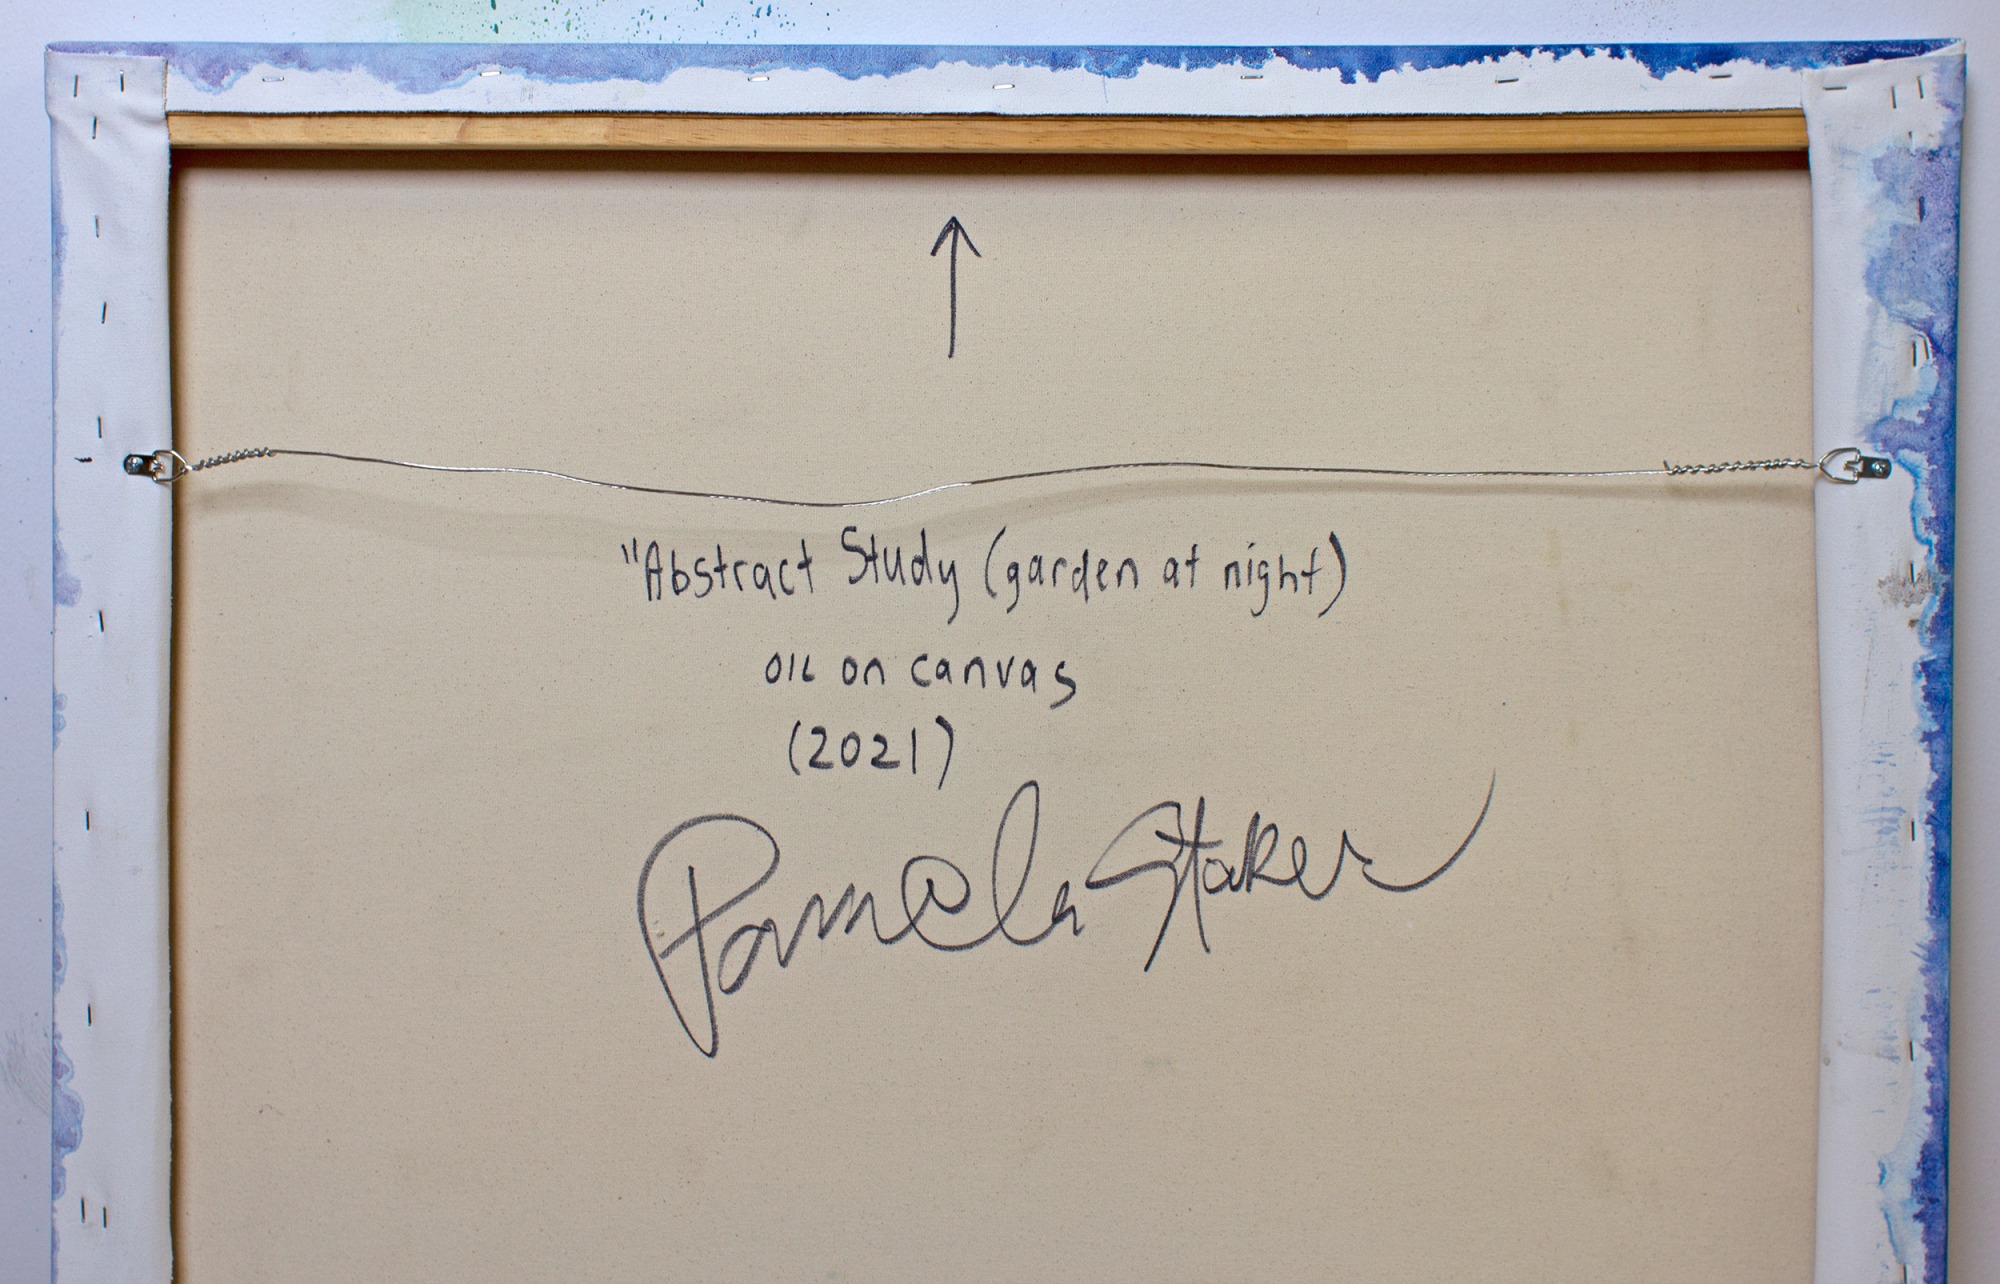 "Abstract Study (garden at night)
OIL on canvas
(2021)
Pamela Staker